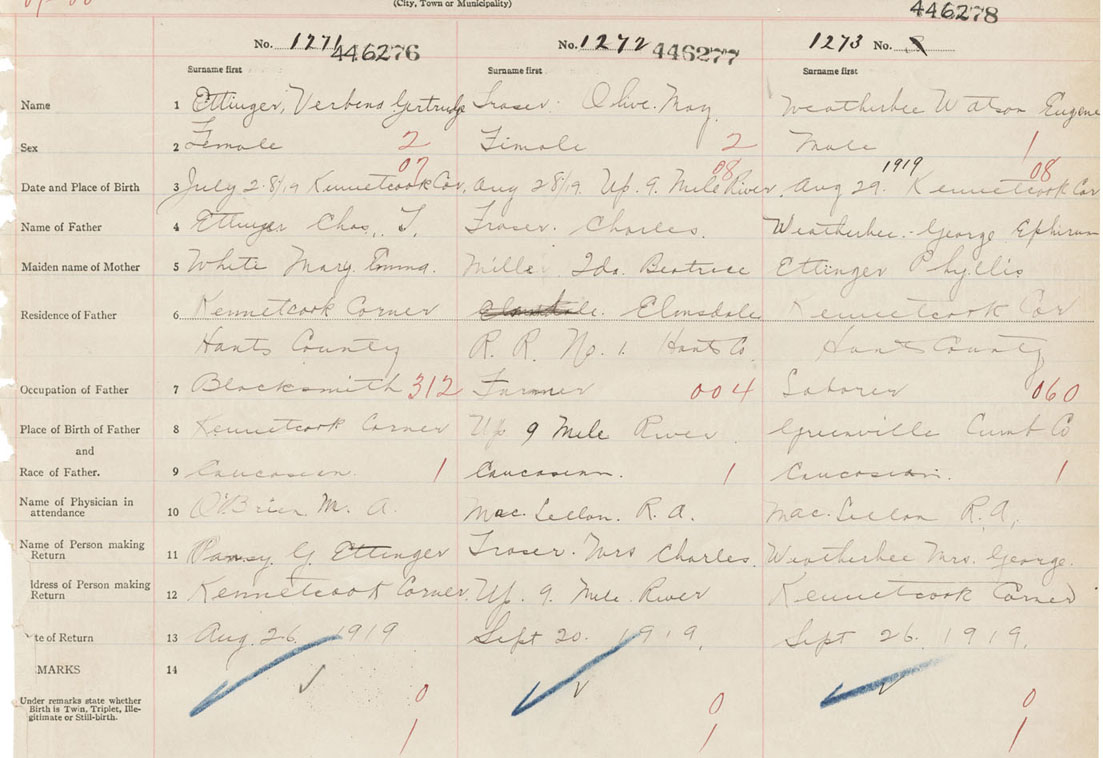 (City, Town or Municipality)
446278
No. 1271 446276 No. 1272 446277 1273 No.
Surname first Surname first Surname first
Name 1 Ettinger, Verbena Gertrude Fraser. Olive. May. Weatherbee Watson Eugene
Sex 2 Female 2 Female 2 Male 1
07 08 1919 08
Date and Place of Birth 3 July 28/19 Kennetcook Cor. Aug 28/19. Up. 9. Mile River. Aug 29. Kennetcook Cor
Name of Father 4 Ettinger Chas. T. Fraser. Charles. Weatherbee. George Ephirum
Maiden name of Mother 5 White Mary. Emma. Mille Ida. Beatrice Ettinger Phyllis
Residence of Father 6 Kennetcook Corner Elmsdale Kennetcook Cor
Hants County R. R. No. 1. Hants Co. Hants County
Occupation of Father 7 Blacksmith 312 Farmer 004 Laborer 060
Place of Birth of Father 8 Kennetcook Corner Up 9 Mile River. Greenville Cumb Co
and
Race of Father. 9 Caucasian. 1 Caucasian. 1 Caucasian. 1
Name of Physician in
attendance 10 O'Brien M. A. Mac. Lellan. R. A. Mac. Lellan R. A.
Name of Person making
Return 11 Pansy. G. Ettinger Fraser. Mrs Charles. Weatherbee Mrs. George.
ddress of Person making
Return 12 Kennetcook Corner. Up. 9. Mile. River Kennetcook Corner
te of Return 13 Aug. 26. 1919 Sept 20. 1919. Sept 26. 1919.
MARKS 14
Under remarks state whether
Birth is Twin, Triplet, Ille-
gitimate or Still-birth.
0 0 0
1 1 1